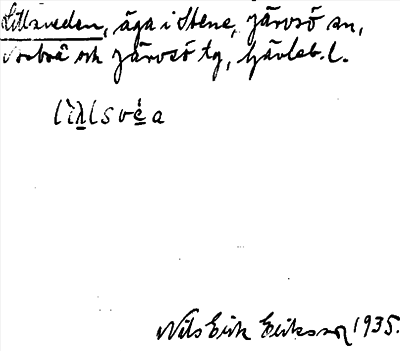 Lillsveden, äga i Stene, Järvsö sn,
Arbrå och Järvsö tg, Gävleb. l.
lìλlsvéa
Nils Erik Eriksson 1935.